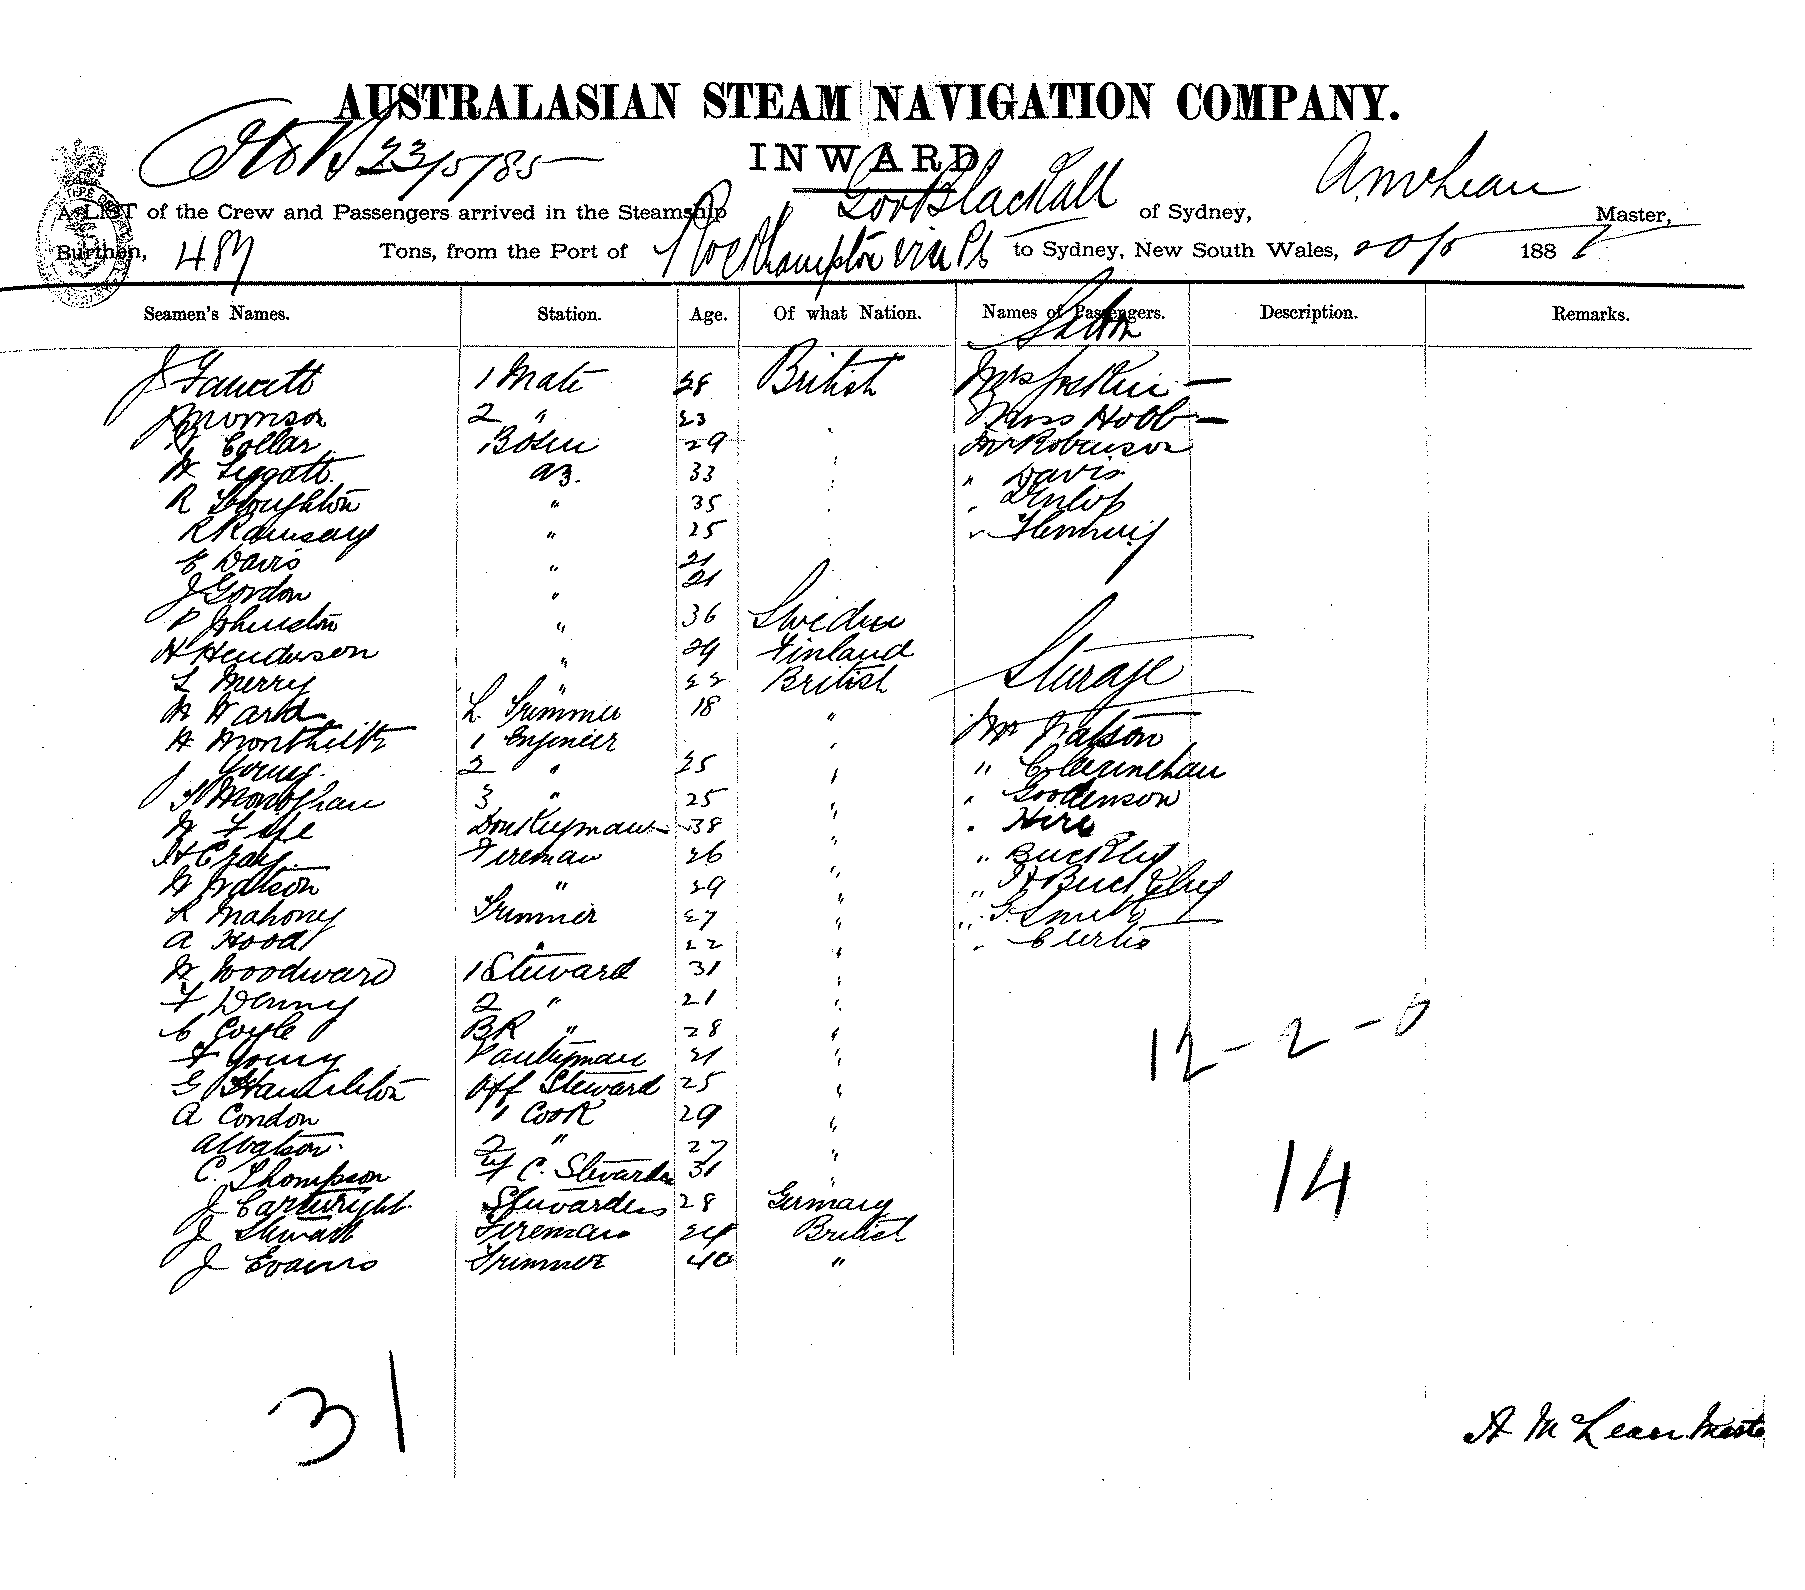 AUSTRALASIAN STEAM NAVIGATION COMPANY.
23/5/85
INWARD
A LIST of the Crew and Passengers arrived in the Steamship Gov Blackall of Sydney, A McLean Master,
Burthen, 487 Tons, from the Port of Rockhampton via Pts to Sydney, New South Wales, 188
Seamen's Names. Station. Age. Of what Nation. Names of Passengers. Description. Remarks.
Saloon
J Fawcett 1 Mate 28 British Mrs
Thomson 2 " 23 Miss Hobb
Collar Bosun 29 Mr Robinson
W Leggatt AB. 33 " Davis
R Stoughton " 35 " Dunlop
R Ramsay " 25 " Flemming
E Davis " 21
J Gordon " 21
P Johnston " 36 Sweden
H Henderson " 29 Finland
Sturage
L Merry " 22 British
W Ward L Trimmer 18 " Mr Watson
H Monthieth 1 Engineer "
J Young 2 " 25 "
T Monoghan 3 " 25 " " Goodenson
W Fife Donkeyman 38 " " Hire
H Gray Fireman 26 " " Buckley
W Watson " 29 " " H Buckley
R Mahoney Trimmer 27 " " G Smith
A Hood " 22 " " Curtis
W Woodward 1 Steward 31 "
F Denny 2 " 21 "
C Coyle BR " 28 "
12-2-0
F Young Pantryman 21 "
G Hamilton Off Steward 25 "
A Condon 1 Cook 29 "
A Watson 2 " 27 "
C. Thompson F C. Steward 31
14
J Cartwright Stewardess 28 Germany
J Stewart Fireman 24 British
J Evans Trimmer 40 "
31
A McLean Master